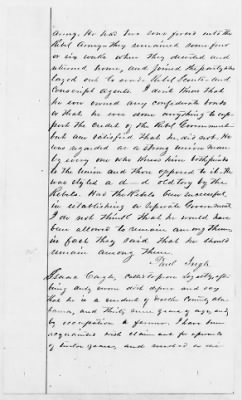 Army. He had two sons forced into the
Rebel Army they remained some four
or six weeks when they deserted and
returned home, and joined the party who
layed out to avoid Rebel Scouts and
Conscript Agents. I don't think that
he ever owned any Confederate bonds
or that he ever done anything to sup
port the credit of the Rebel Government
but am satisfied that he did not. He
was regarded as a strong union man
by every one who knew him both friends
to the Union and those opposed to it. He
was styled a d—d old tory by the
Rebels. Had the Rebels been successful
in establishing a separate Government
I do not think that he would have
been allowed to remain among them,
in fact they said that he should
remain among them.
Isaac Cagle, called to prove Loyalty, after
being duly sworn did depose and say
that he is a resident of County, Ala
bama, and Thirty Seven years of age, and
by occupation a farmer. I have been
acquainted with claimant for upwards
of twelve years, and resided in